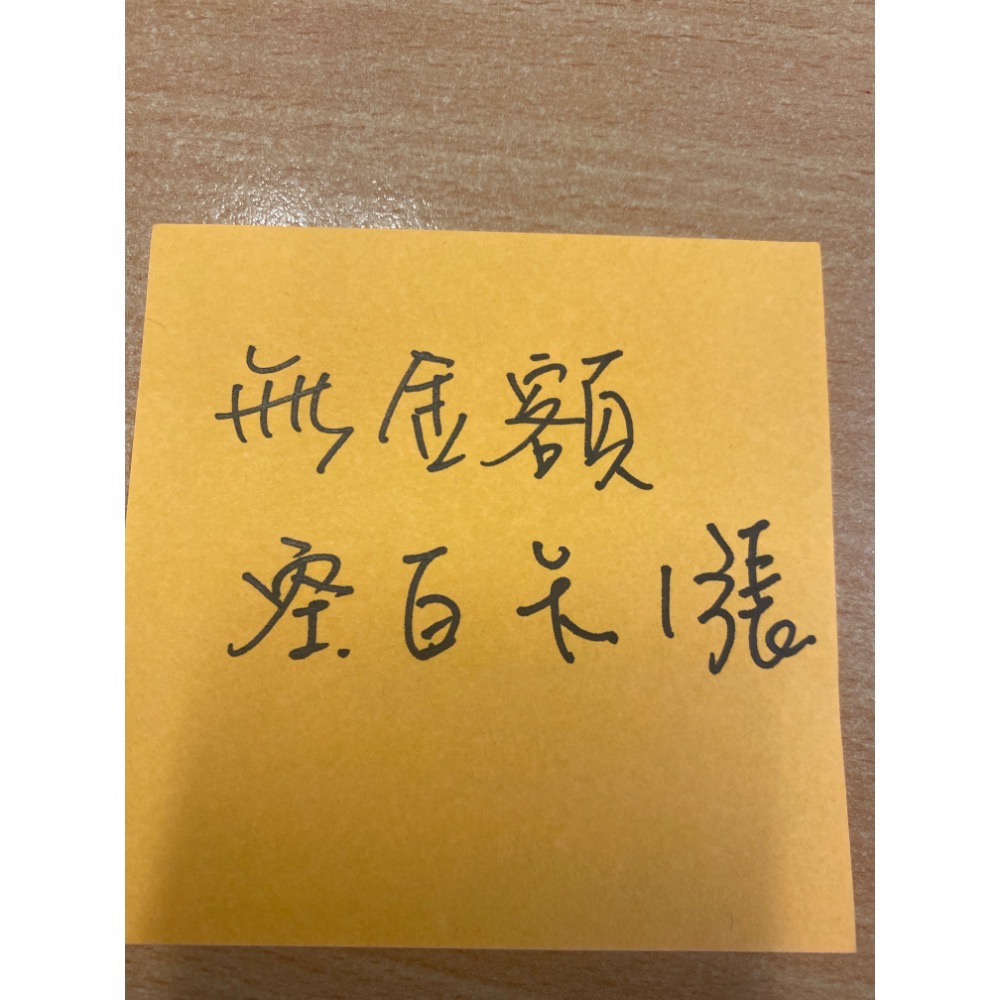 無金額
空白卡1張